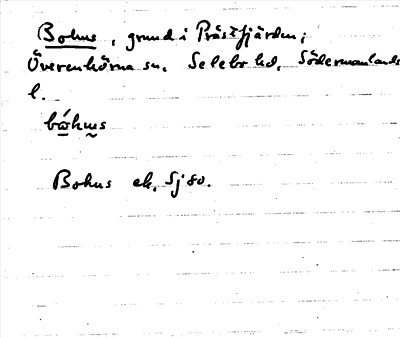 Bohus, grund i Prästfjärden;
Överenhörna sn. Selebo hd, Södermanlands
l.
bώhus
Bohus ek. Sj 80.